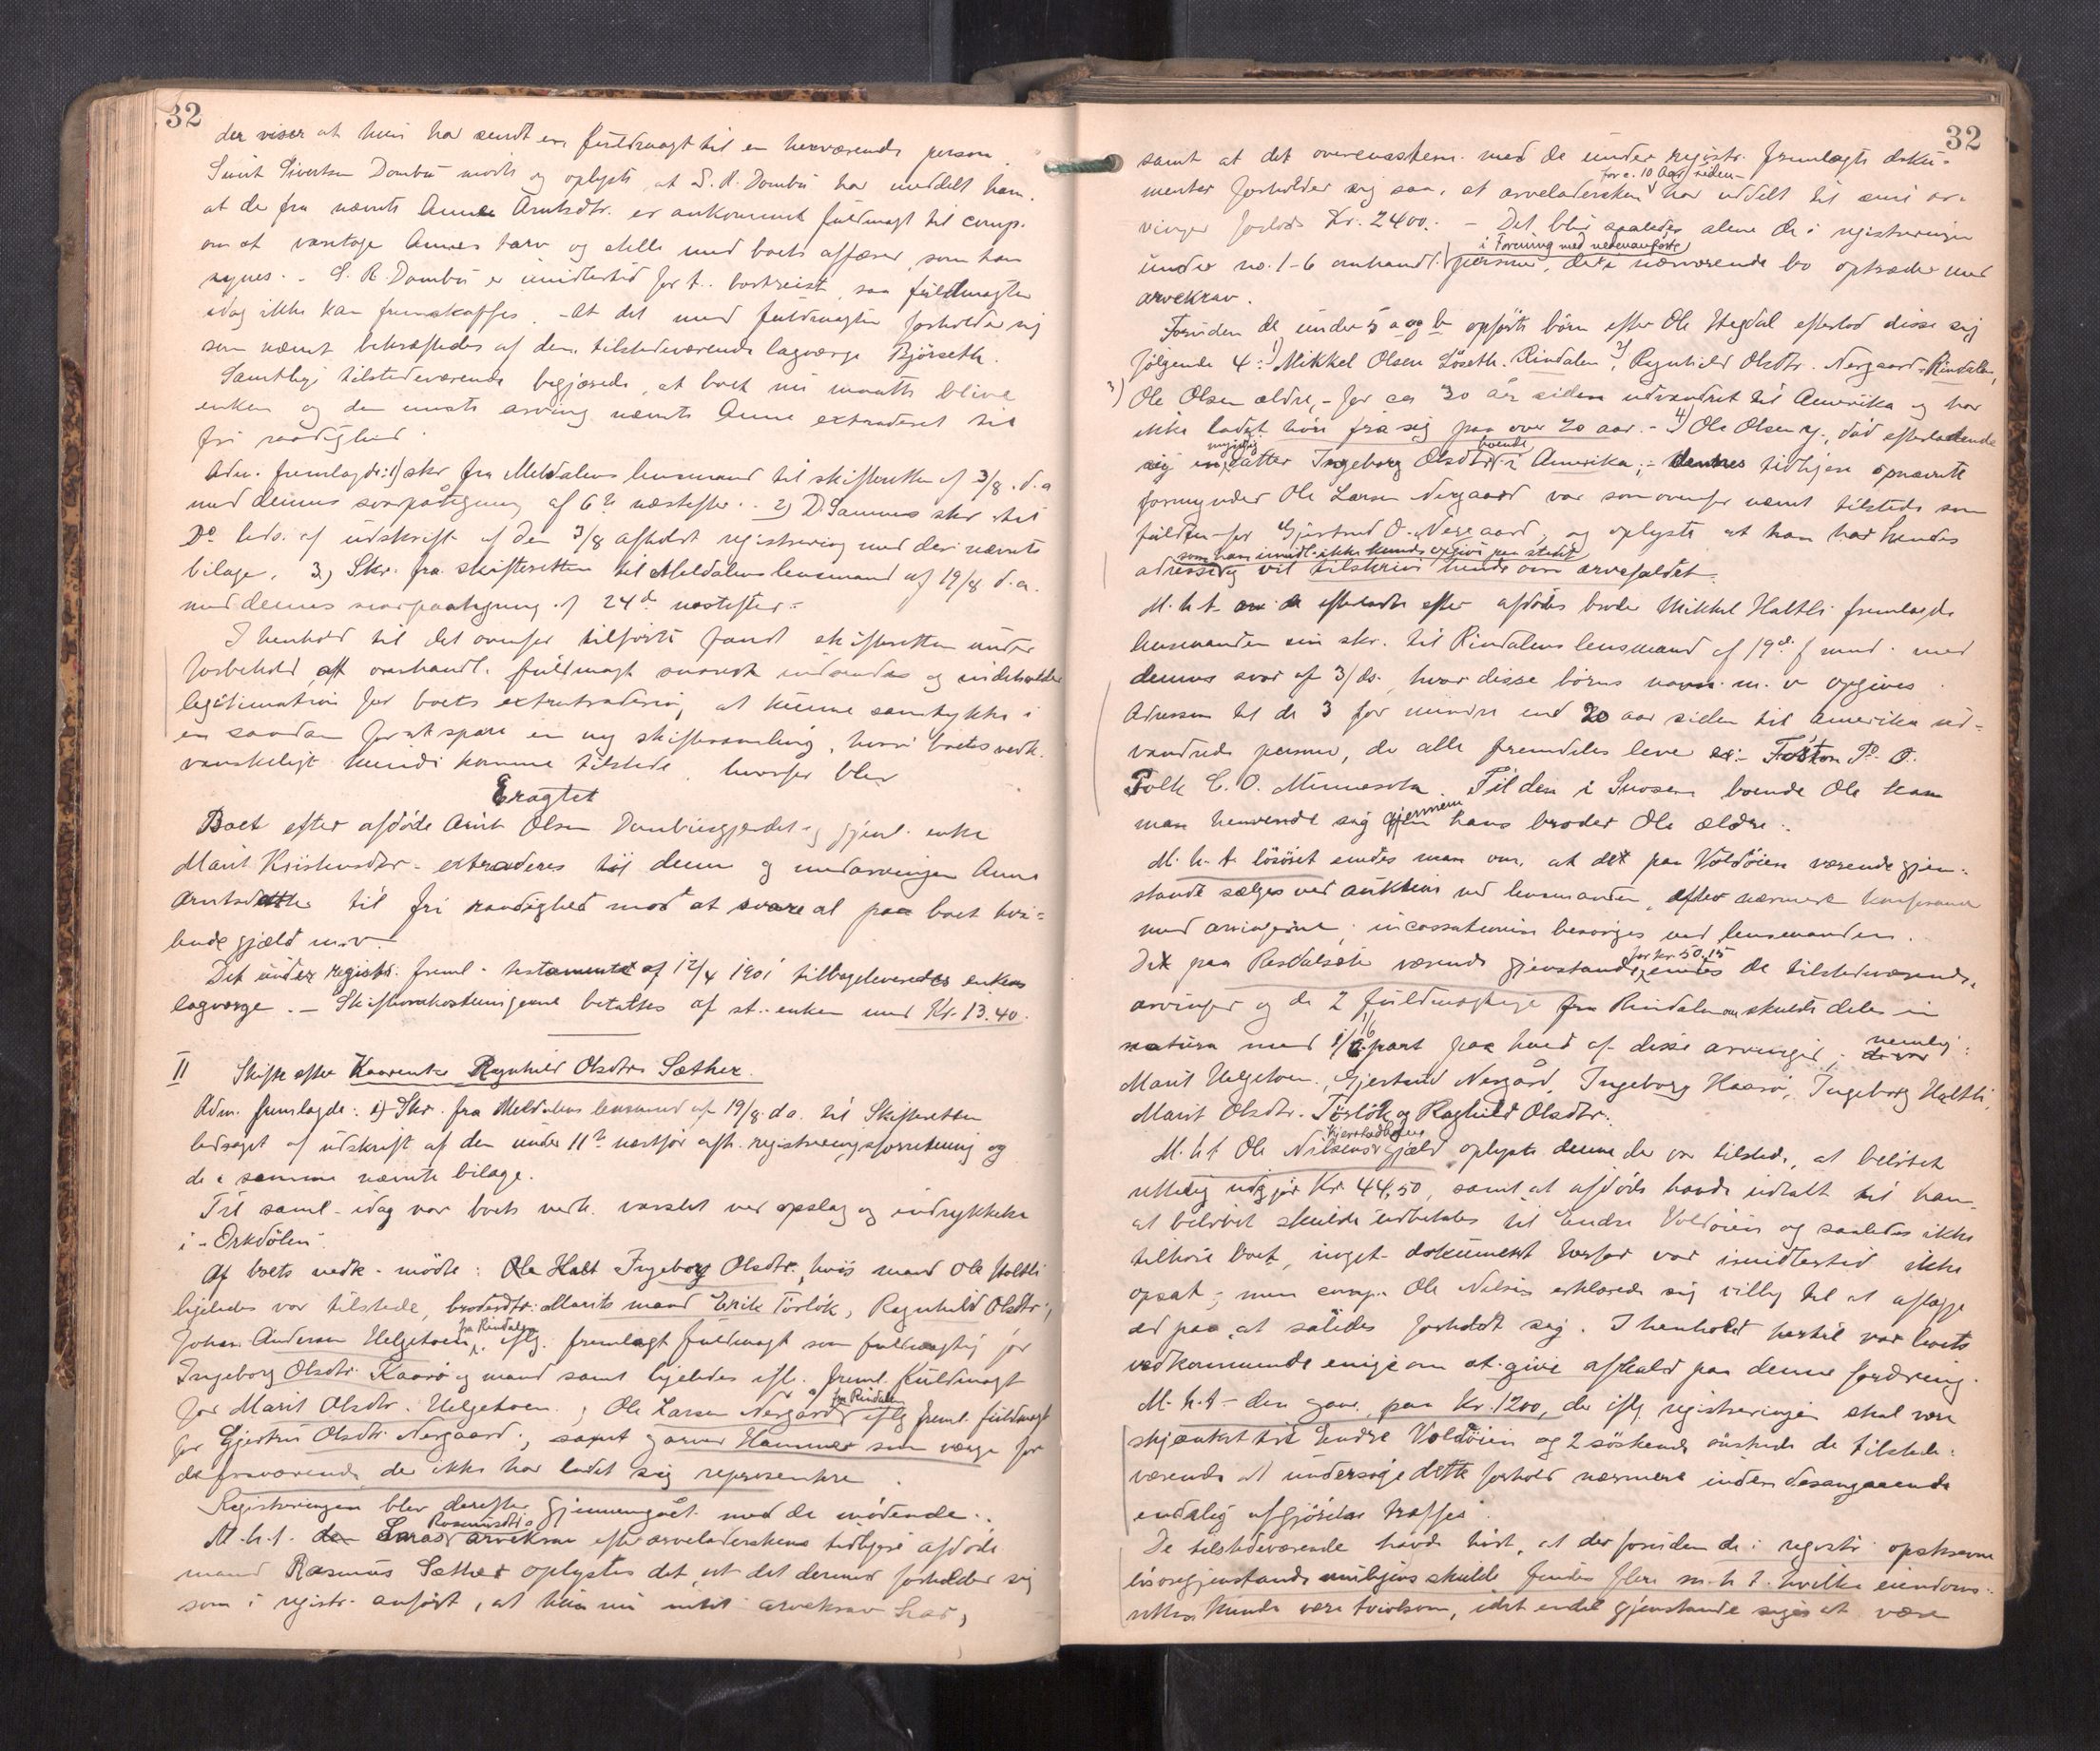 32
der viser at hun har sendt en fuldmagt til en herværende person.
Sivert Sivertsen Dombu mødte og oplyste at S. R. Dombu har meddelt ham,
at der fra nævnte Anne Arntsdtr. er ankommet fuldmagt til comp.
om at varetage Annes tarv og stelle med boets affærer, som han
synes. - S. R. Dombu er imidlertid for t. bortreist, saa fuldmagten
idag ikke kan fremskaffes. - At det med fuldmagten forholder sig
som nævnt bekræftedes af den tilstedeværende lagværge Bjørseth.
Samtlige tilstedeværende begjærede, at boet nu maatte blive
enken og den eneste arving nævnte Anne extraderet til
fri raadighed.
Adm. fremlagde: 1) skr fra Meldalens lensmand til skifteretten af 3/8. d.a
med dennes svarpåtegning af 6te næstefter. 2) D. Sammes skr til
Do leds. af udskrift af den 3/8 afholdt registrering med deri nævnte
bilage. 3) Skr. fra skifteretten til Meldalens lensmand af 19/8 d.a.
med dennes svarpaategning af 24de næstefter. -
I henhold til det ovenfor tilførte fandt skifteretten under
forbehold, at omhandl. fuldmagt snarest indsendes og indeholder
legitimation for boets extradering, at kunne samtykke i
en saadan for at spare en ny skiftesamling, hvori boets vedk.
vanskeligt kunde komme tilstede, hvorfor blev
Eragtet
Boet efter afdøde Arnt Olsen Dombugjerdet og gjenl. enke
Marit Kristensdtr. extraderes til denne og medarvingen Anne
Arntsdatter til fri raadighed mod at svare al paa boet hvi-
lende gjæld m.v.
Det under registr. freml. testamente af 12/4 1901 tilbageleveredes enkens
lagværge. - Skifteomkostningerne betaltes af st. enken med Kr. 13.40.
II Skifte efter Kaarenke Ragnhild Olsdtr. Sæther.
Adm. fremlagde: 1) Skr. fra Meldalens lensmand af 19/8 d.a. til Skifteretten
ledsaget af udskrift af den under 11te næstfør afh. registreringsforretning og
de i samme nævnte bilage.
Til saml. idag var boets vedk. varslet ved opslag og indrykkelse
i "Orkdølen".
Af boets vedk. mødte: Ole Halt Ingeborg Olsdtr., hvis mand Ole Haltli
ligeledes var tilstede, broderdtr. Marits mand Erik Tørløk, Ragnhild Olsdtr.,
Johan Andersen Helgetoen fra Rindalen, iflg. fremlagt fuldmagt som fuldmægtig for
Ingeborg Olsdtr. Kaarø og mand samt ligeledes ifl. freml. fuldmagt
for Marit Olsdtr. Helgetoen, Ole Larsen Nergaard fra Rindalen iflg freml. fuldmagt
for Gjertru Olsdtr. Nergaard, samt garver Hammer som værge for
de fraværende, der ikke har ladet sig repræsentere.
Registreringen blev derefter gjennemgåt med de mødende.
M.h.t. den Saras Rasmusdtrs arvekrav efter arveladerskens tidligere afdøde
mand Rasmus Sæther oplystes det, at det dermed forholder sig
som i registr. anført, at hun nu intet arvekrav har,
32
samt at det overensstem. med de under registr. fremlagte doku-
menter forholder sig saa, at arveladersken for c. 10 Aar siden har uddelt til sine ar-
vinger forlods Kr. 2400. - Det blir saaledes alene de i registreringen
under no. 1-6 omhandl. i Forening med nedenanførte personer, der i nærværende bo optræder med
arvekrav.
Foruden de under 5 a og b opførte børn efter Ole Hegdal efterlod disse sig
følgende 4: 1) Mikkel Olsen Løseth. Rindalen 2) Ragnhild Olsdtr. Nergaard. Rindalen,
3) Ole Olsen ældre, - for ca 30 år siden udvandret til Amerika og har
ikke ladet høre fra sig paa over 20 aar. - 4) Ole Olsen y., død efterladende
sig en myndig datter Ingeborg Olsdtr. boende i Amerika; - dennes tidligere opnævnte
formynder Ole Larsen Nergaard var som ovenfor nævnt tilstede som
fuldm. for Gjertrud O. Nergaard, og oplyste at han har hendes
adresse som han imidl. ikke kunde opgive paa stedet og vil tilskrive hende om arvefaldet.
M.h.t. de efterladte efter afdødes broder Mikkel Haltli fremlagde
lensmanden sin skr. til Rindalens lensmand af 19de f. mnd. med
dennes svar af 3/ds., hvor disse børns navn m.v. opgives.
Adressen til de 3 for mindre end 20 aar siden til Amerika ud-
vandrede personer, de alle fremdeles leve er: Foston P. O.
Polk C.O. Minnesota. Til den i Snosen boende Ole kan
man henvende sig gjennem hans broder Ole ældre.
M.h.t. løsøret enedes man om, at det paa Voldøien værende gjen-
stande sælges ved auktion ved lensmanden, efter nærmere konferance
med arvingerne; incassationen besørges ved lensmanden.
De paa Resdalsæter værende gjenstande for kr. 50.15 enedes de tilstedeværende
arvinger og de 2 fuldmægtige fra Rindalen om skulde deles in
natura med 1/6 part paa hver af disse arvinger, nemlig:
Marit Helgetoen, Gjertrud Nergård, Ingeborg Kaarø, Ingeborg Haltli,
Marit Olsdtr. Tørløk og Raghild Olsdtr.
M.h.t Ole Nilsens gjæld oplyste denne der var tilstede, at beløbet
rettelig udgjør Kr 44,50, samt at afdøde havde udtalt til ham
at beløbet skulde udbetales til Endre Voldøien og saaledes ikke
tilhøre boet, noget dokument herfor var imidlertid ikke
opsat; men comp. Ole Nilsen erklærede sig villig til at aflægge
ed paa, at således forholdt sig. I henhold hertil var boets
vedkommende enige om at give afkald paa denne fordring.
M.h.t. den gave paa Kr. 1200, der iflg. registreringen skal være
skjænket til Endre Voldøien og 2 søskende ønskede de tilstede-
værende at undersøge dette forhold nærmere inden desangaaende
endelig afgjørelse træffes.
De tilstedeværende havde hørt, at der foruden de i registr. opskrevne
løsøregjenstande muligens skulde findes flere m.h.t. hvilke eiendoms-
retten kunde være tvivlsom, idet endel gjenstande siges at være